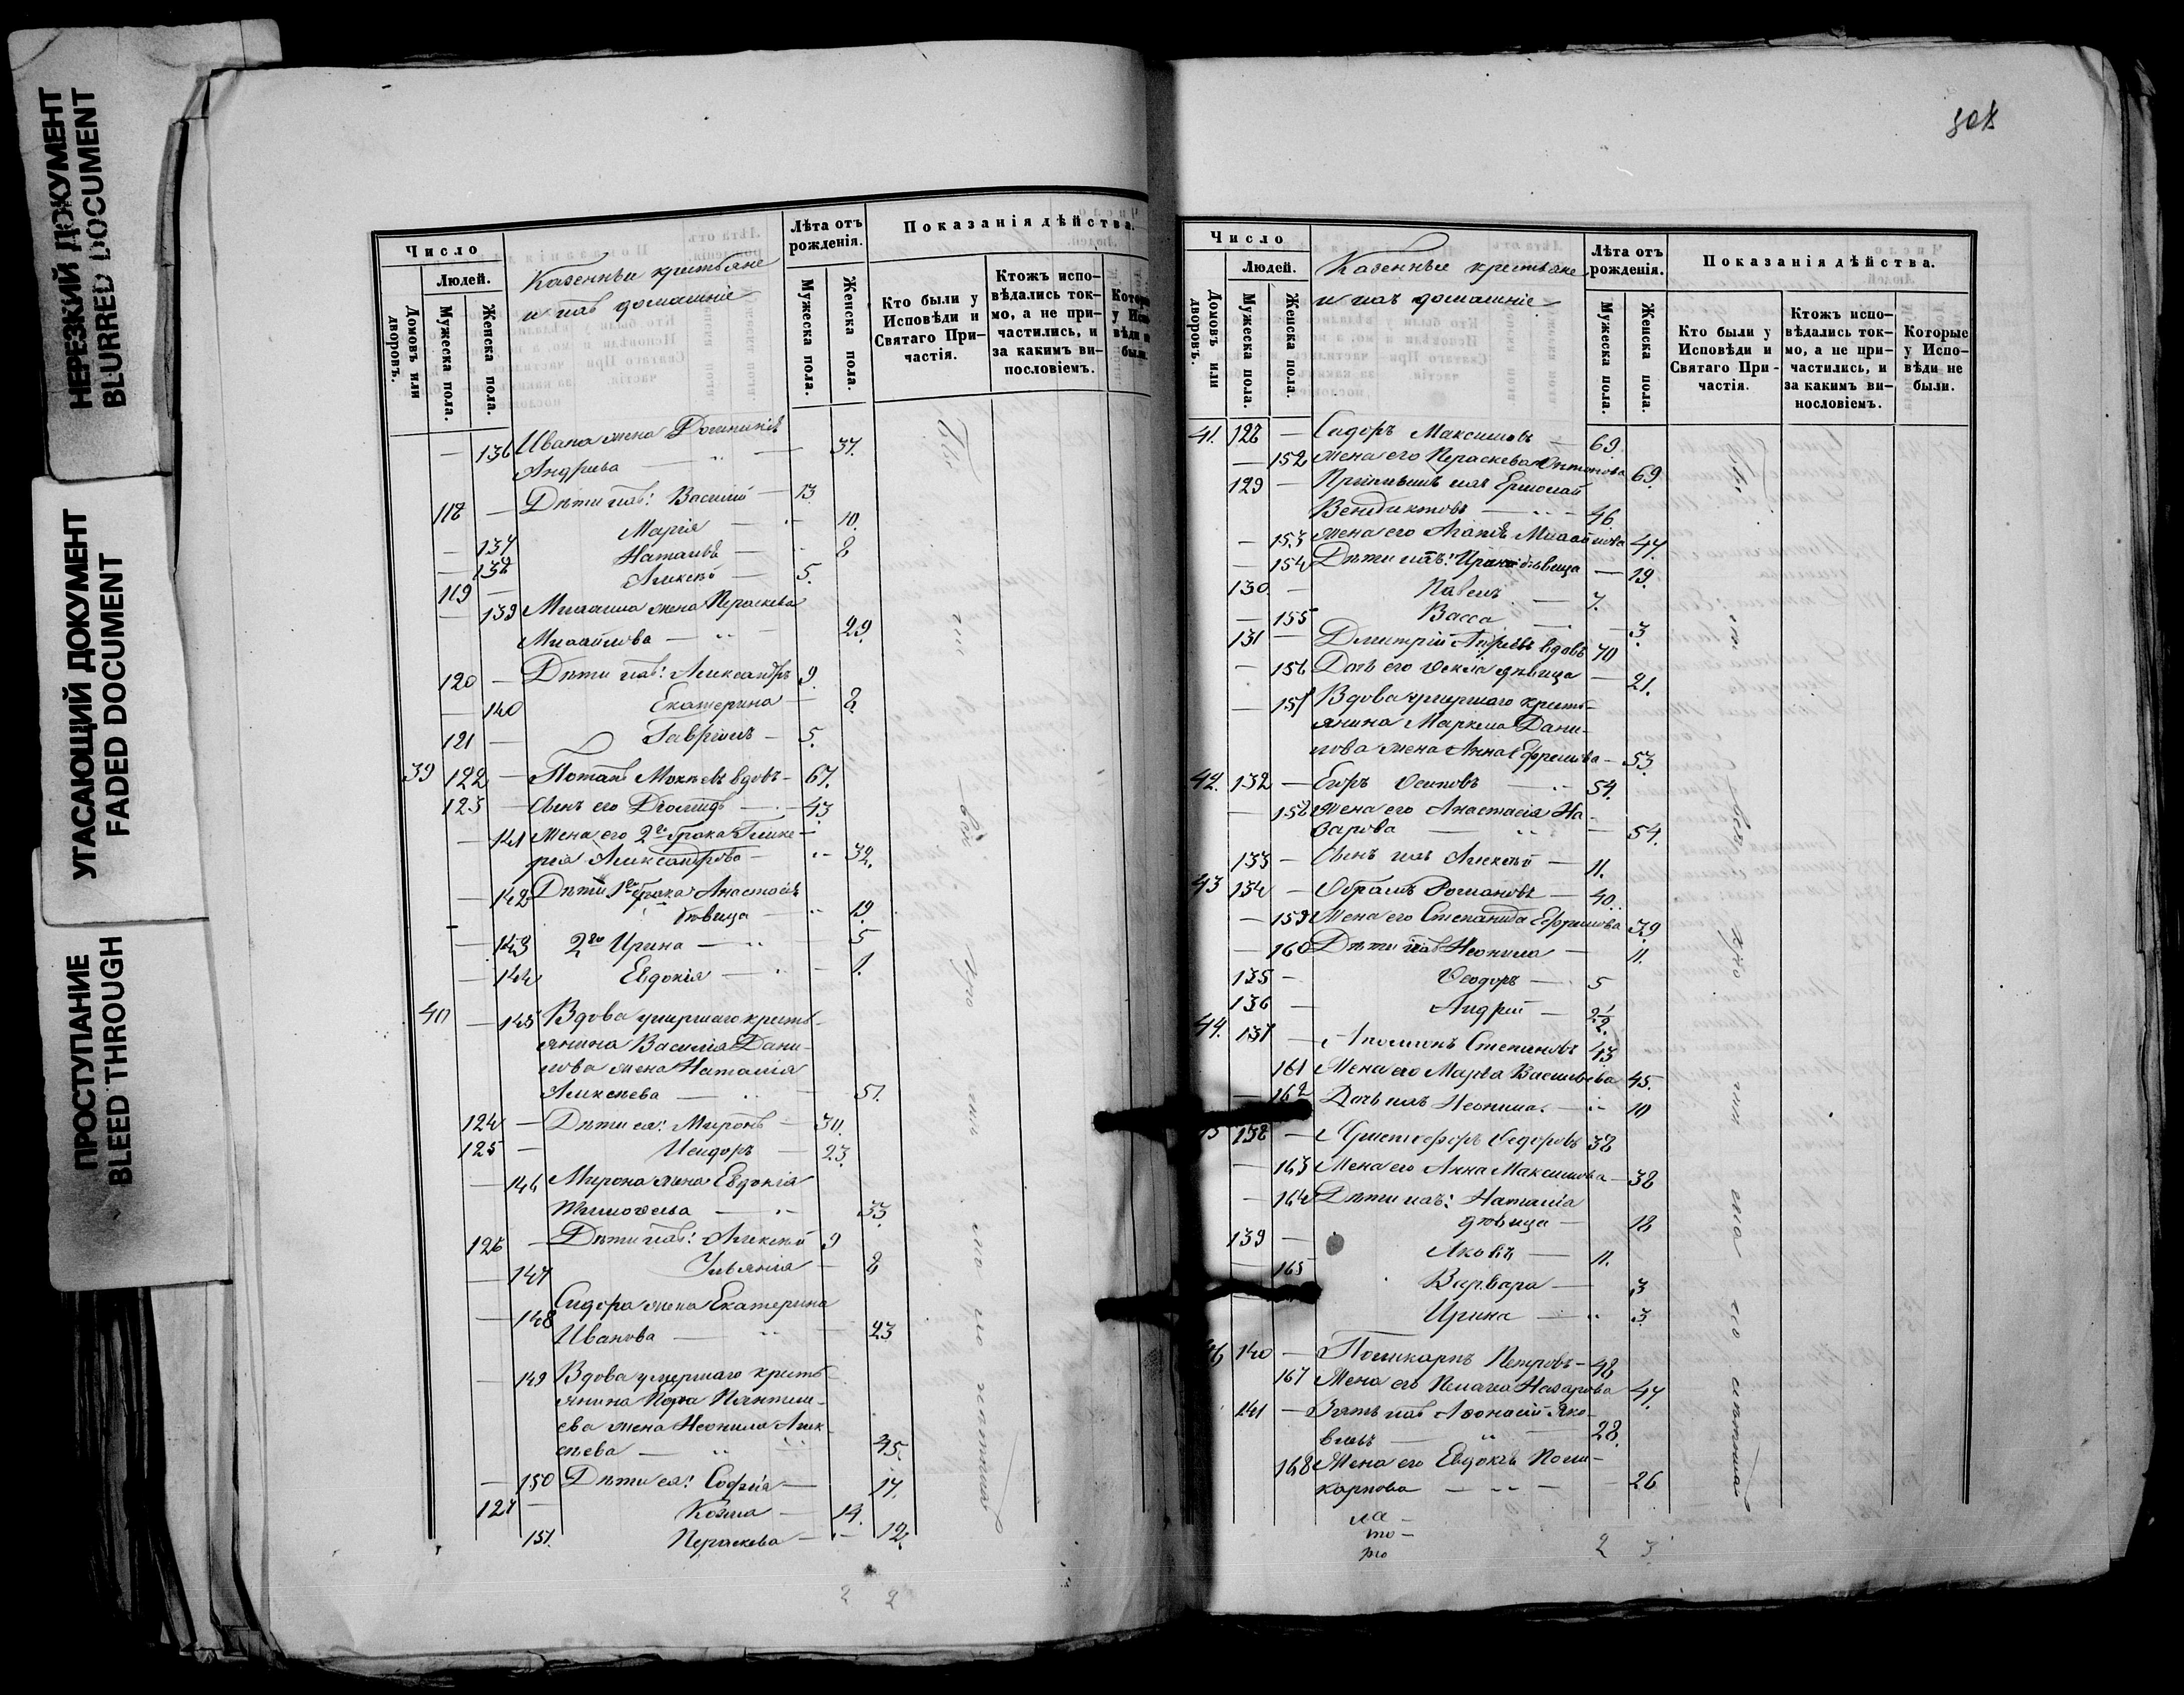 НЕРЕЗКИЙ ДОКУМЕНТ
BLURRED DOCUMENT
УГАСАЮЩИЙ ДОКУМЕНТ
FADED DOCUMENT
ПРОСТУПАНИЕ
BLEED THROUGH
Число
Людей.
Домовъ или дворовъ.
Мужеска пола.
Женска пола.
Казенные крестьяне
и ихъ домашніе
Лѣта отъ рожденія.
Мужеска пола.
Женска пола.
Показанія дѣйства.
Кто были у Исповѣди и Святаго Причастія.
Ктожъ исповѣдались токмо, а не причастились, и за какимъ винословіемъ.
136 Ивана жена
Андреева 37.
118 Дѣти ихъ: Василій 13
137 Марія 10.
138 Наталья 8
119 Алексѣй 5.
139 жена Пераскева
Михайлова 29.
120 Дѣти ихъ: Александръ 9.
140 Екатерина 8.
121 Гавріилъ 5.
39 122 Потапъ Мокѣевъ вдовъ 67.
123 Сынъ его Діомидъ 43
141 Жена его 2го брака Глике-
рія Александрова 32.
142 Дѣти 1го брака Анастасія
дѣвица 19.
143 2го Ирина 5
144 Евдокія 1.
40 145 Вдова умершаго кресть-
янина Василія Дани-
лова жена Наталія
Алексѣева 51.
124 Дѣти ея: Миронъ 30.
125 Исидоръ 23.
146 Мирона жена Евдокія
Тимоѳеева 33.
126 Дѣти ихъ: Алексѣй 9
147 Ульянія 8
148 Сидора жена Екатерина
Иванова 23
149 Вдова умершаго кресть-
янина Пантеле-
ева жена Неонила Алек-
сѣева 45.
150 Дѣти ея: Софія 17.
127 Козма 14.
151. Пераскева 12.
2 2
Число
Людей.
Домовъ или дворовъ.
Мужеска пола.
Женска пола.
Казенные крестьяне
и ихъ домашніе
Лѣта отъ рожденія.
Мужеска пола.
Женска пола.
Показанія дѣйства.
Кто были у Исповѣди и Святаго Причастія.
Ктожъ исповѣдались токмо, а не причастились, и за какимъ винословіемъ.
Которые у Исповѣди не были.
41. 128 Сидоръ Максимовъ 69.
152 Жена его Пераскева Антонова 69.
129 ихъ Ермолай
Венедиктовъ 46.
153 Жена его Агапія Михайлова 47.
154 Дѣти ихъ: Ирина дѣвица 19.
130 Павелъ 7.
155 Васса 3.
131 Дмитрій вдовъ 70
156 Дочь его Ѳекла дѣвица 21.
157 Вдова умершаго кресть-
янина Маркела Дани-
лова жена Анна Ефремова 53.
42. 132 Егоръ Осиповъ 54.
158 Жена его Анастасія На-
зарова 54.
133 Сынъ ихъ Алексѣй 11.
43 134 Абрамъ Романовъ 40.
159 Жена его Степанида Ефремова 39.
160 Дѣти ихъ Неонила 11.
135 Ѳеодоръ 5
136 Андрей 2½.
44. 137 Аполлонъ Степановъ 43
161 Жена его Марѳа Васильева 45.
162 Дочь ихъ Неонила. 10
138 Христофоръ Ѳедоровъ 38
163 Жена его Анна Максимова 38
164 Дѣти ихъ: Наталія
дѣвица 18
139 Яковъ 11.
165 Варвара 3
Ирина 3.
46 140 Поликарпъ Петровъ 48
167 Жена его Пелагея Назарова 47.
141 Зять ихъ Аѳонасій Яко-
влевъ 28.
168 Жена его Евдокія Поли-
карпова 26
2 3